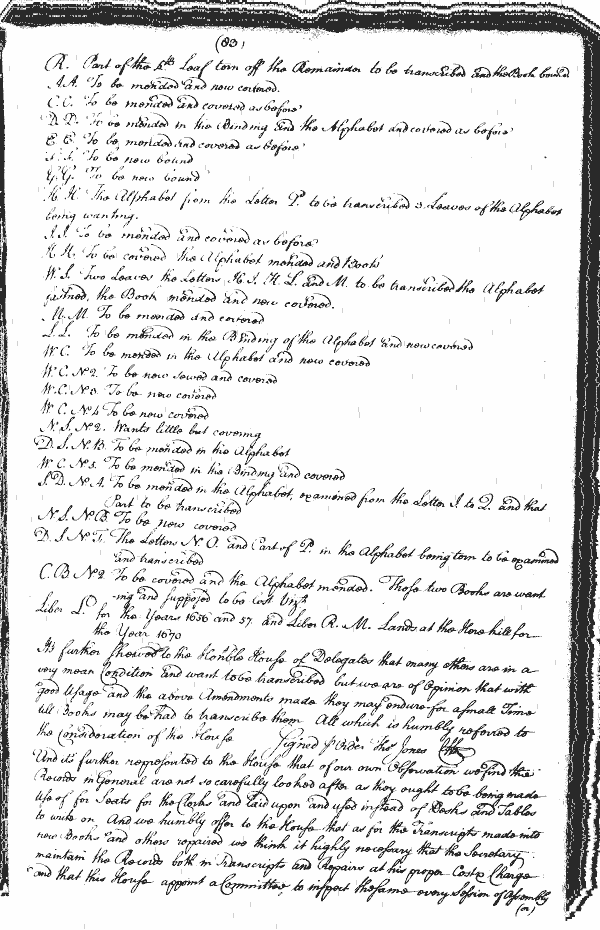 (83)
R. Part of the 4th Leaf torn off the Remainder to be transcribed and the Book bound
A.A. To be mended and new covered.
C.C. To be mended and covered as before
D.D. To be mended in the Binding and the Alphabet and covered as before
E.E. To be mended and covered as before
F.F. To be new bound
G.G. To be new bound
H.H. The Alphabet from the Letter P. to be transcribed 3 Leaves of the Alphabet
being wanting.
I.I. To be mended and covered as before
K.K. To be covered the Alphabet mended and Book
W.S. Two Leaves the Letters H. I. K. L. and M. to be transcribed the Alphabet
fastned, the Book mended and new covered.
M.M. To be mended and covered
L.L. To be mended in the Binding of the Alphabet and new covered
W.C. To be mended in the Alphabet and new covered
W.C. No 2. To be new sewed and covered
W.C. No 3. To be new covered
W.C. No 4 To be new covered
N.S. No 2. Wants little but covering
D.S. N. B. To be mended in the Alphabet
W.C. No 5. To be mended in the Binding and covered
S.D. No A. To be mended in the Alphabet, examined from the Letter I. to Q. and that
Part to be transcribed
N.S. No B. To be new covered
D.S. No T. The Letters N. O. and Part of P. in the Alphabet being torn to be examined
and transcribed
C.B No 2 To be covered and the Alphabet mended. Those two Books are want
-ing and supposed to be lost Vizt
Liber L. for the Years 1656 and 57 and Liber R. M. Lands at the Horekill for
the Year 1670
It's further shewed to the Honble House of Delegates that many others are in a
very mean Condition and want to be transcribed but we are of Opinion that with
good Usage and the above Amendments made they may endure for a small Time
till Books may be had to transcribe them All which is humbly referred to
the Consideration of the House Signed p Order Tho Jones Clk
And it's further represented to the House that of our own Observation we find the
Records in General are not so carefully looked after as they ought to be being made
Use of for Seats for the Clerks and laid upon and used instead of Desks and Tables
to write on. And we humbly offer to the House that as for the Transcripts made into
new Books and others repaired we think it highly necessary that the Secretary
maintain the Records both in Transcripts and Repairs at his proper Cost & Charge
and that this House appoint a Committee to inspect the same every Session of Assembly
(or)